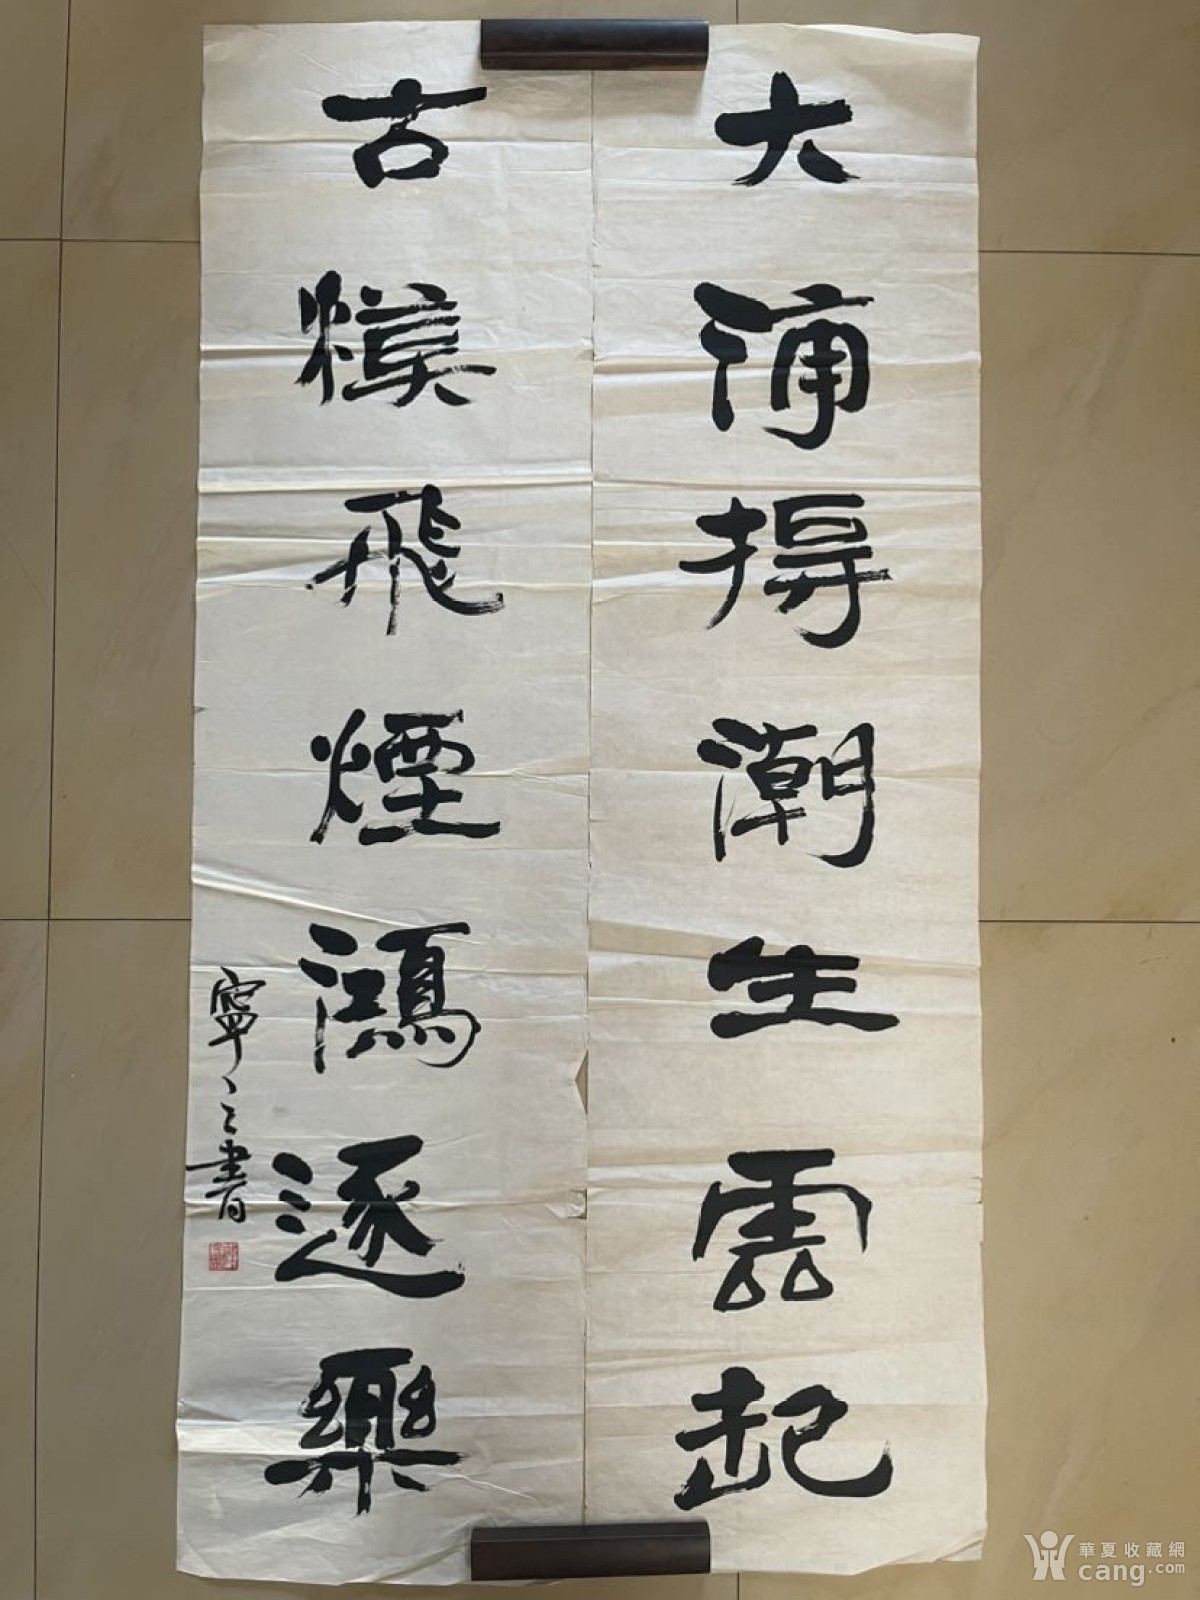 大浦揚潮生雲起
古模飛煙鴻逐樂
寧之書
華夏收藏網
cang.com